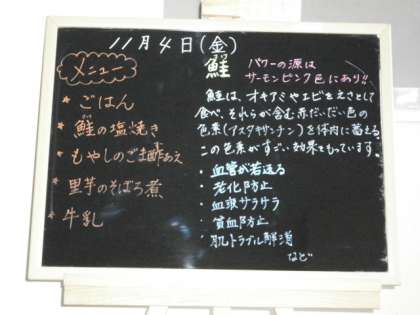 11月4日(金)
メニュー
★ ごはん
★ 鮭の塩焼き
★ もやしのごま酢あえ
★ 里芋のそぼろ煮
★ 牛乳
鮭
パワーの源は
サーモンピンク色にあり!!
鮭は、オキアミやエビをえさとして
食べ、それらが含む赤だいだい色の
色素(アスタキサンチン)を体内に蓄える。
この色素がすごい効果をもっています。
・血管が若返る
・老化防止
・血液サラサラ
・貧血防止
・肌トラブル解消
など